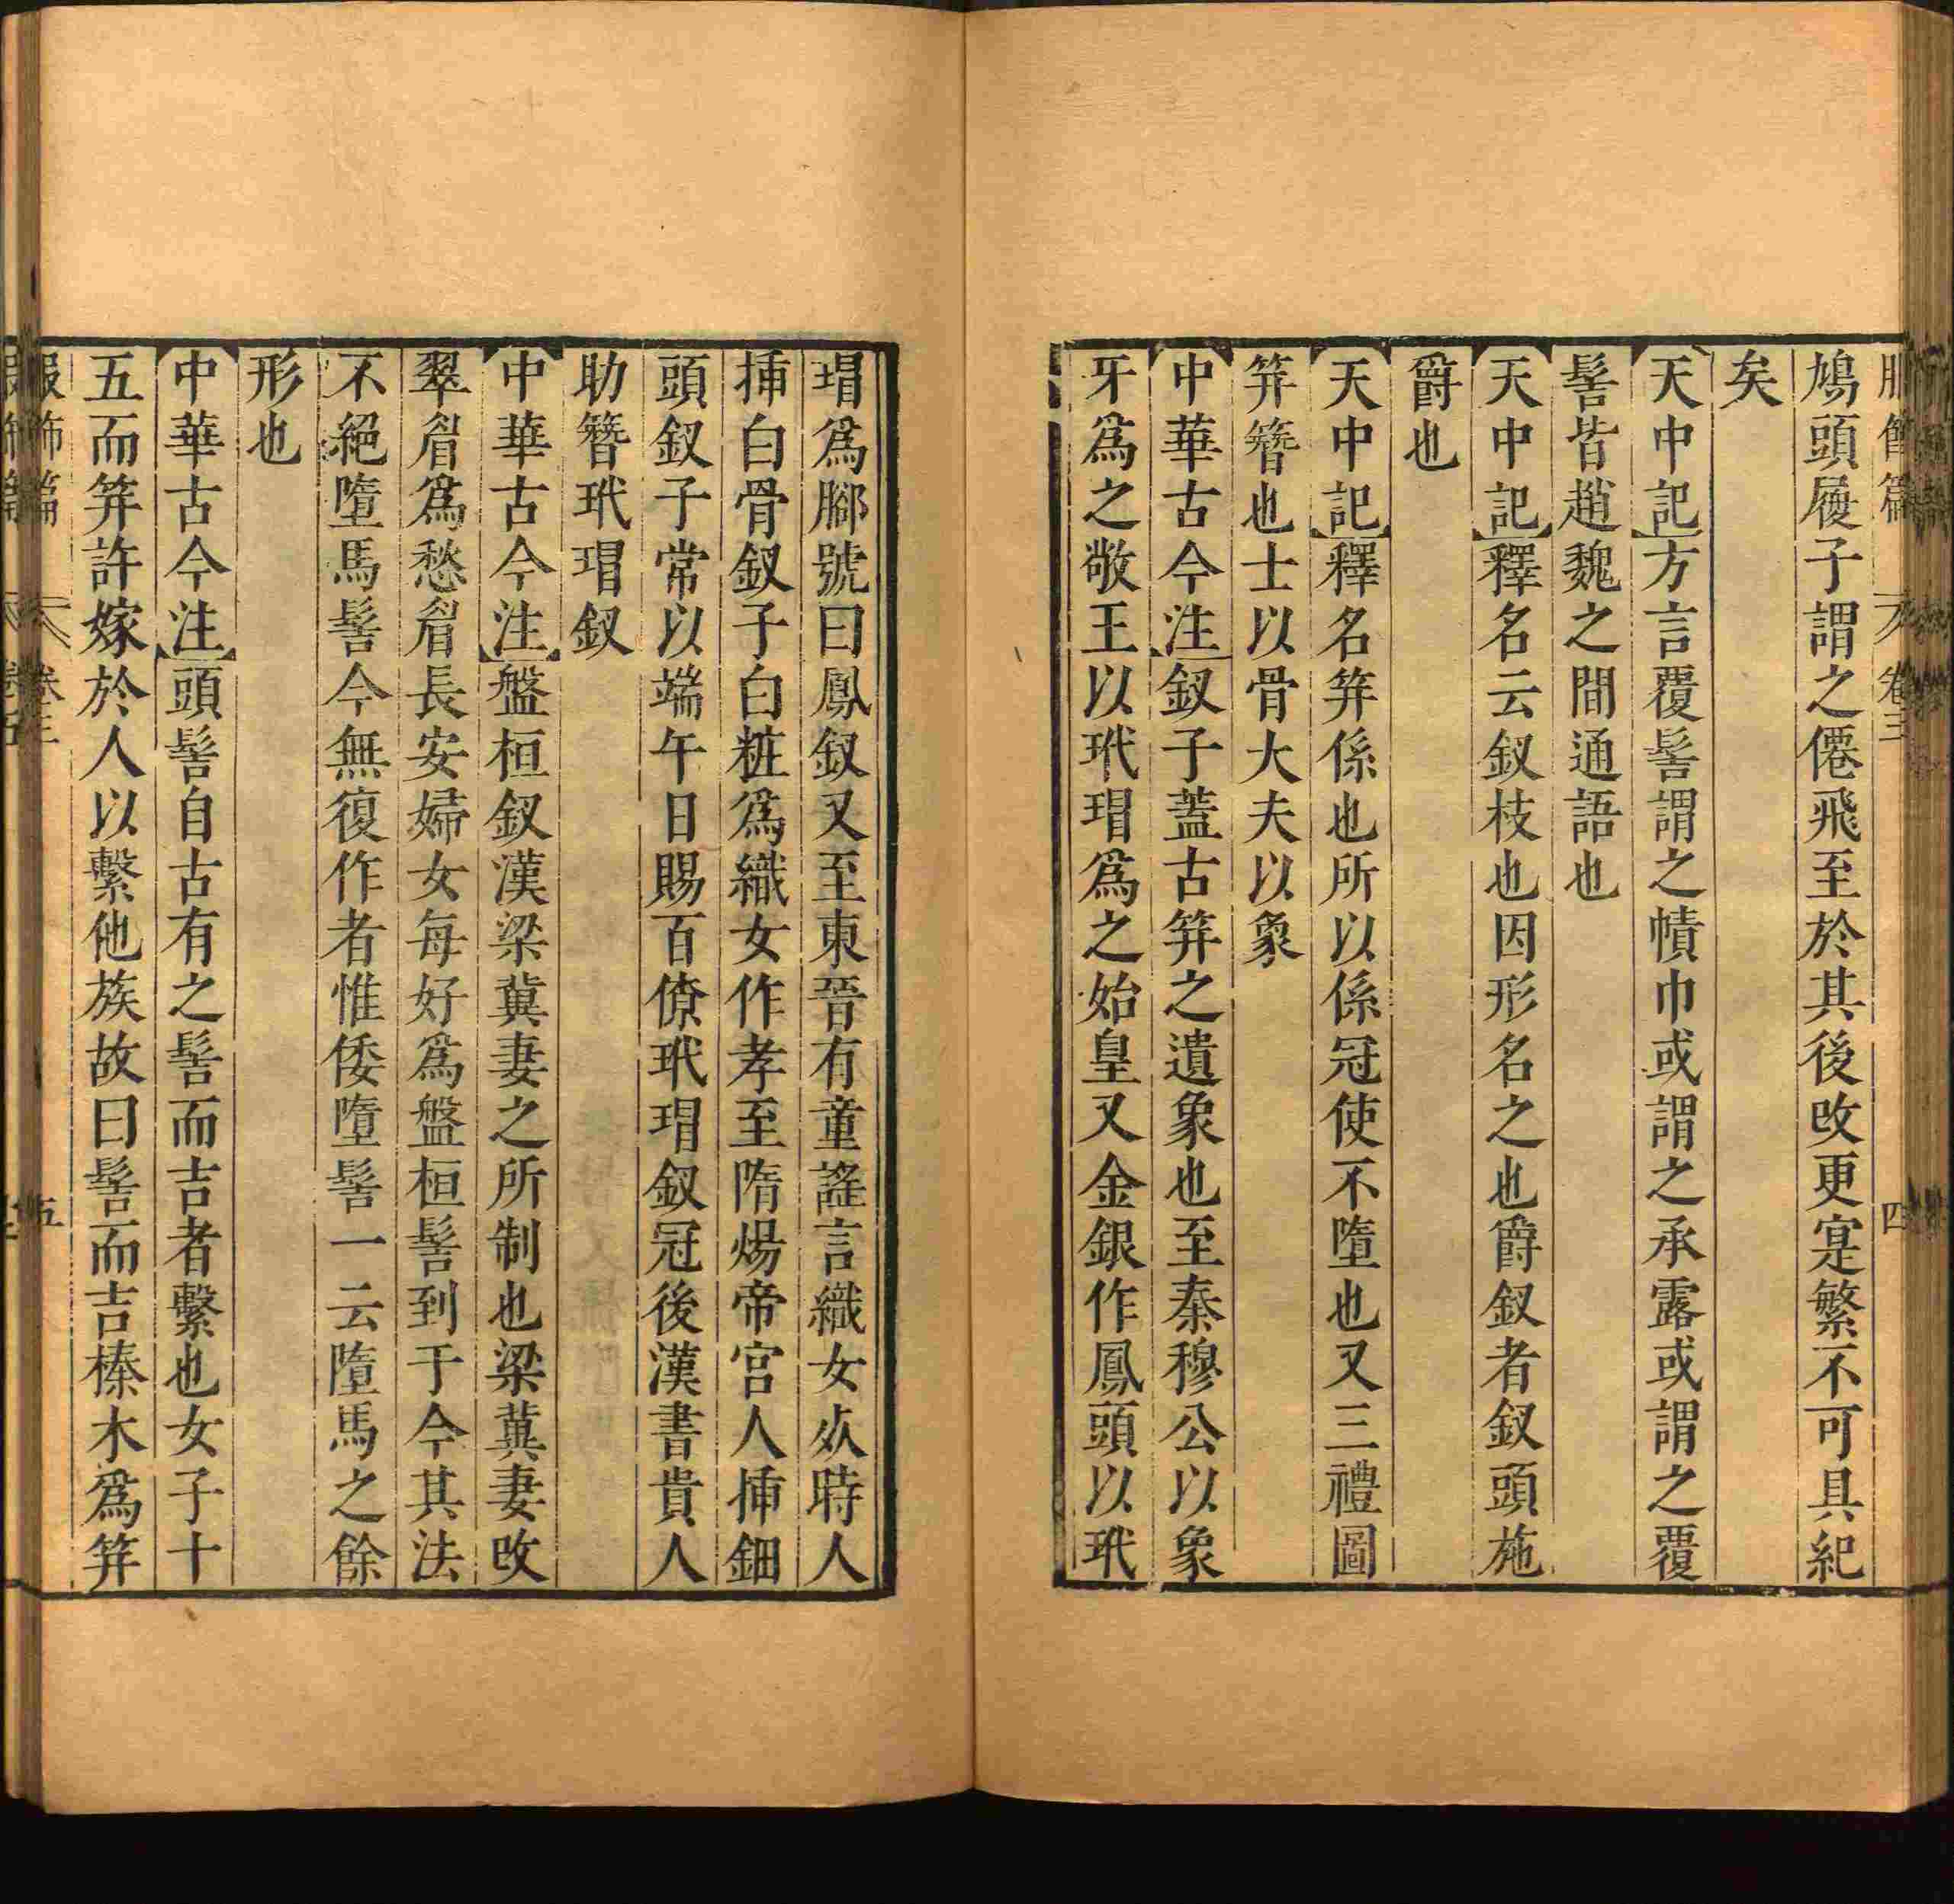 服飾篇 卷三 四
鳩頭履子謂之僊飛至於其後改更寔繁不可具紀
矣
天中記方言覆髻謂之幘巾或謂之承露或謂之覆
髻皆趙魏之間通語也
天中記釋名云釵枝也因形名之也爵釵者釵頭施
爵也
天中記釋名笄係也所以係冠使不墮也又三禮圖
笄簪也士以骨大夫以象
中華古今注釵子蓋古笄之遺象也至秦穆公以象
牙爲之敬王以玳瑁爲之始皇又金銀作鳳頭以玳
瑁爲腳號曰鳳釵又至東晉有童謠言織女死時人
揷白骨釵子白粧爲織女作孝至隋煬帝宮人揷鈿
頭釵子常以端午日賜百僚玳瑁釵冠後漢書貴人
助簪玳瑁釵
中華古今注盤桓釵漢梁冀妻之所制也梁冀妻改
翠眉爲愁眉長安婦女每好爲盤桓髻到于今其法
不絕墮馬髻今無復作者惟倭墮髻一云墮馬之餘
形也
中華古今注頭髻自古有之髻而吉者繫也女子十
五而笄許嫁於人以繫他族故曰髻而吉榛木爲笄
服飾篇 卷三 五